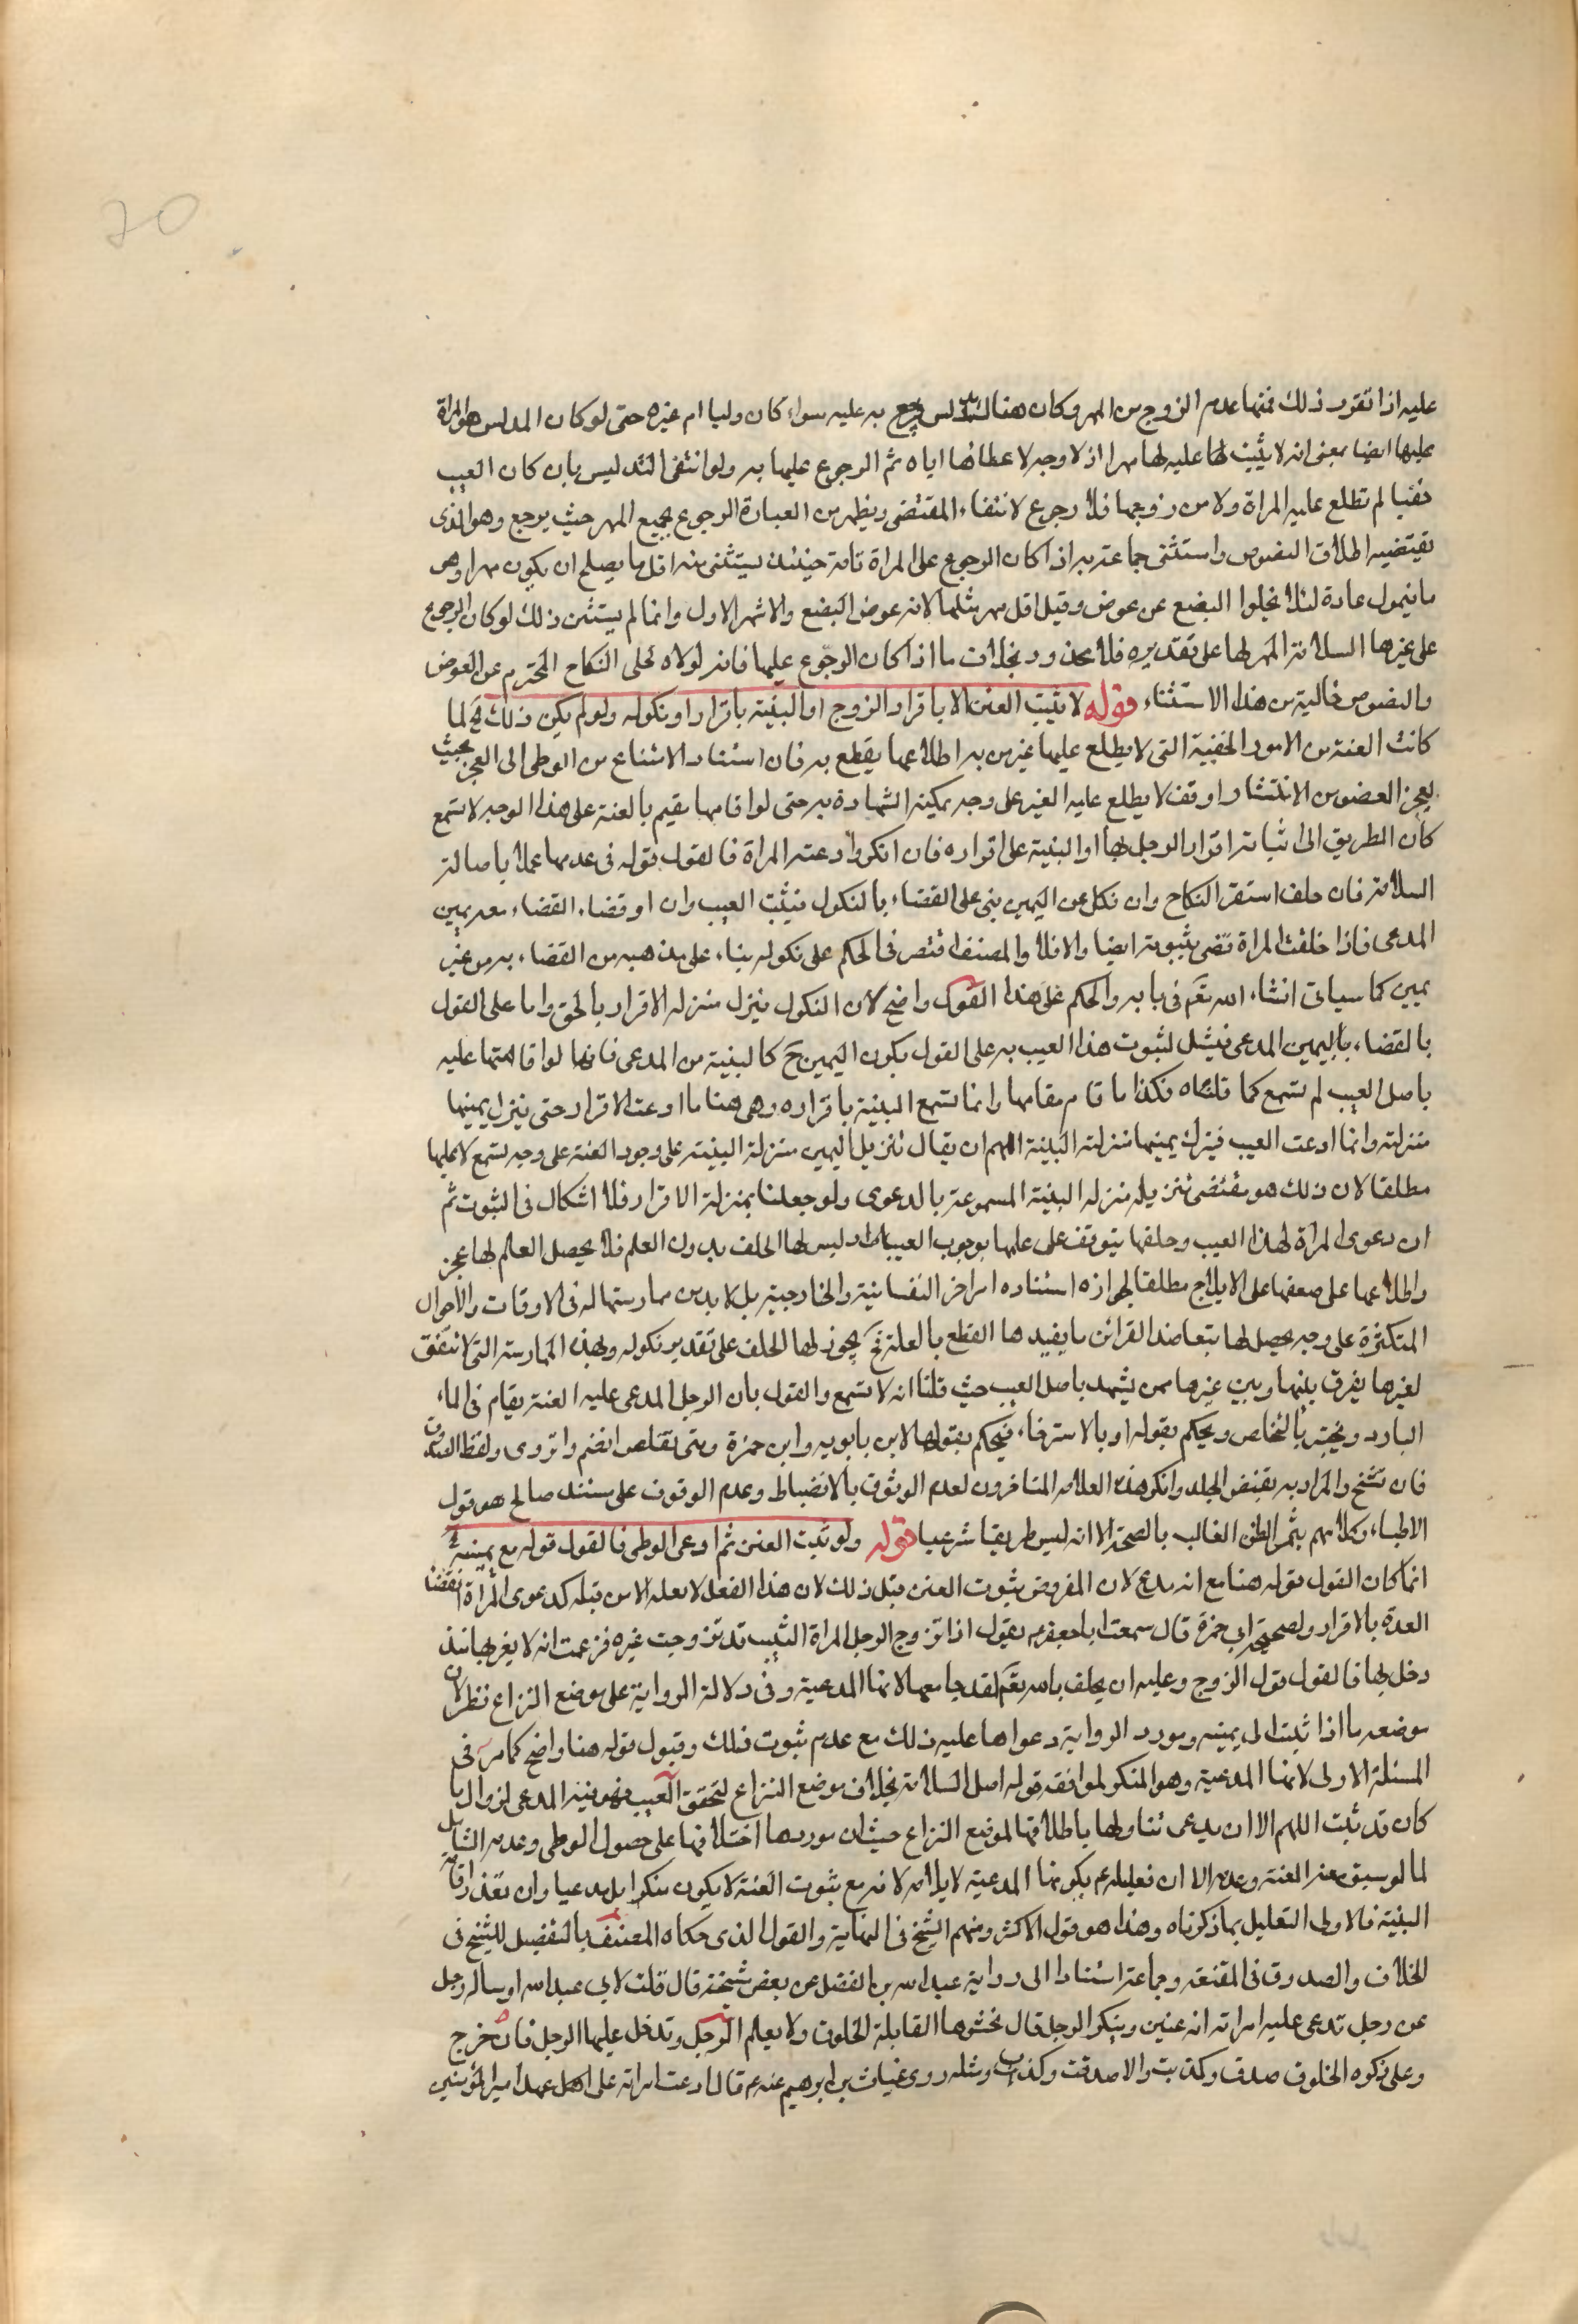 عليه اذا تقرر ذلك فمتى اعدم الزوج من المهر وكان هناك مدلس رجع به عليه سواء كان وليا ام غيره حتى لو كان المدلس هو المراة
عليها ايضا بمعنى انه لا يثبت لها عليه لها مهرا اذ لا وجه لاعطائها اياه ثم الرجوع عليها به ولو انتفى التدليس بان كان العيب
خفيا لم تطلع عليه المراة ولا من زوجها فلا رجوع لانتفاء المقتضى ويظهر من العبارة الرجوع بجميع المهر حيث يرجع وهو الذى
يقتضيه اطلاق النصوص واستثنى جماعة به اذا كان الرجوع على المراة تامة حينئذ يستثنى منه اقل ما يصلح ان يكون مهرا وهو
ما يتمول عادة لئلا يخلوا البضع عن عوض وقيل اقل مهر مثلها لانه عوض البضع والاشهر الاول وانما لم يستثن ذلك لو كان الرجوع
على غيرها السلامة المهر لها على تقديره فلا محذور بخلاف ما اذا كان الرجوع عليها فانه لولاه لخلى النكاح المحترم عن العوض
والنصوص خالية من هذا الاستثناء قوله لا يثبت العنن الا باقرار الزوج او البينة باقراره او نكوله ولو لم يكن ذلك الخ لما
كانت العنة من الامور الخفية التى لا يطلع عليها غير من به اطلاعها يقطع به فان استناد الامتناع من الوطى الى العجز بحيث
يعجز العضو من الانتشار او قف لا يطلع عليه الغير على وجه يمكنه الشهادة به حتى لو اقامها يقيم بالعنة على هذا الوجه لا تسمع
كان الطريق الى اثباته اقرار الرجل بها او البينة على اقراره فان انكر وادعته المراة فالقول قوله فى عدمها عملا باصالة
السلامة فان حلف استقر النكاح وان نكل عن اليمين بنى على القضاء بالنكول فيثبت العيب وان اوقضاء القضاء معه يمين
المدعى فاذا حلفت المراة قضى بثبوته ايضا والا فلا والمصنف اقتصر فى الحكم على نكوله بناء على مذهبه من القضاء به من غير
يمين كما سياتى انشاء الله تعم فى بابه والحكم على هذا القول واضح لان النكول ينزل منزله الاقرار بالحق واما على القول
بالقضاء باليمين المدعى فيشكل لثبوت هذا العيب به على القول بكون اليمين ح كالبينة من المدعى فانها لو اقامتها عليه
باصل العيب لم تسمع كما قلناه فكذا ما قام مقامها وانما تسمع البينة باقراره وهى هنا ما ادعت الاقرار حتى ينزل يمينها
منزلته وانما ادعت العيب فينزل يمينها منزلة البينة اللهم ان يقال تنزيل اليمين منزلة البينة على وجود العنة على وجه تسمع لا عليها
مطلقا لان ذلك هو مقتضى تنزيله منزله البينة المسموعة بالدعوى ولو جعلنا بمنزلة الاقرار فلا اشكال فى الثبوت ثم
ان دعوى المراة لهذا العيب وحلفها يتوقف على علمها بوجوب العيب ليس لها الحلف بدون العلم فلا يحصل العلم لها بمجرد
واطلاعها على ضعفها على الايلاج مطلقا لجوازه استناده امر اخر النفسانية والخارجية بل لا بد من ممارستها له فى الاوقات والاحوال
المتكثرة على وجه يحصل لها بتعاضد القرائن ما يفيدها القطع بالعلة فح يجوز لها الحلف على تقدير نكوله وبهذه الممارسة التى لا تتفق
لغيرها يفرق بينها وبين غيرها ممن يشهد باصل العيب حيث قلنا انه لا تسمع والقول بان الرجل المدعى عليه العنة يقام فى الماء
البارد ويختبر بالتخلص ويحكم بقوله او بالاسترخاء فيحكم بقولها لابن بابويه وابن حمزة ومتى تقلص ولفظ الصدوق
فان تشنج والمراد به تقبض الجلد وانكر هذه العلامه المتاخرون لعدم الوثوق بالانضباط وعدم الوقوف على مستند صالح هو قول
الاطباء وكلامهم يثمر الظن الغالب بالصحة الا انه ليس طريقا شرعيا قوله ولو ثبت العنن ثم ادعى الوطى فالقول قوله مع يمينه الخ
انما كان القول قوله هنا مع انه مدع لان المفروض ثبوت العنن قبل ذلك لان هذا الفعل لا يعلم الا من قبله كدعوى المراة انقضاء
العدة بالاقرار ولصحيحة ابى حمزة قال سمعت ابا جعفر ع يقول اذا تزوج الرجل المراة الثيب قد تزوجت غيره فزعمت انه لا يقربها منذ
دخل بها فالقول قول الزوج وعليه ان يحلف بالله تعم لقد جامعها لانها المدعية وفى دلالة الرواية على موضع النزاع نظر لان
موضعه ما اذا ثبت الى يمينه ومورد الرواية دعواها عليه ذلك مع عدم ثبوت ذلك وقبول قوله هنا واضح كما مر فى
المسئلة الاولى لانها المدعية وهو المنكر لموافقة قوله اصل السلامة بخلاف موضع النزاع لتحقق العيب فهو فيه المدعى لزوال ما
كان قد ثبت اللهم الا ان يدعى تناولها باطلاقها لموضع النزاع حيث ان موردها اختلافها على حصول الوطى وعدمه الشامل
لما لو سبق معه العنة وعدمه الا ان تعليله ع بكونها المدعية لا يلائمه لانه مع ثبوت العنة لا يكون منكرا بل مدعيا وان تعذر اقامة
البينة فالاولى التعليل بما ذكرناه وهذا هو قول الاكثر ومنهم الشيخ فى النهاية والقول الذى حكاه المصنف بالتفصيل للشيخ فى
الخلاف والصدوق فى المقنعة وجماعة استنادا الى رواية عبد الله بن الفضل عن بعض شيخة قال قلت لابى عبد الله او ساله رجل
عن رجل تدعى عليه امراته انه عنين وينكر الرجل قال تحشوها القابلة الخلوق ولا يعلم الرجل وتدخل عليها الرجل فان خرج
وعلى ذكره الخلوق صدق وكذبت والا صدقت وكذب ومثله روى غياث بن ابرهيم عنه ع قال ادعت امراة على اهل عهد امير المؤمنين